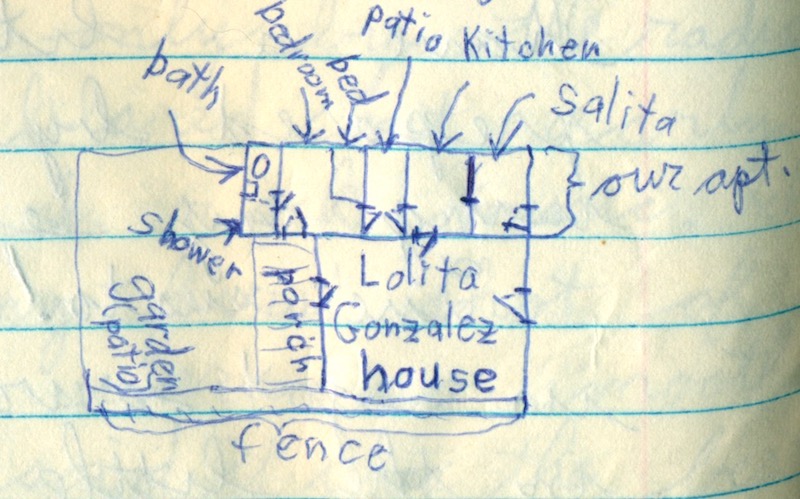 bath
bedroom
bed
Patio
Kitchen
Salita
our apt.
shower
garden
(patio)
porch
Lolita
Gonzalez
house
fence